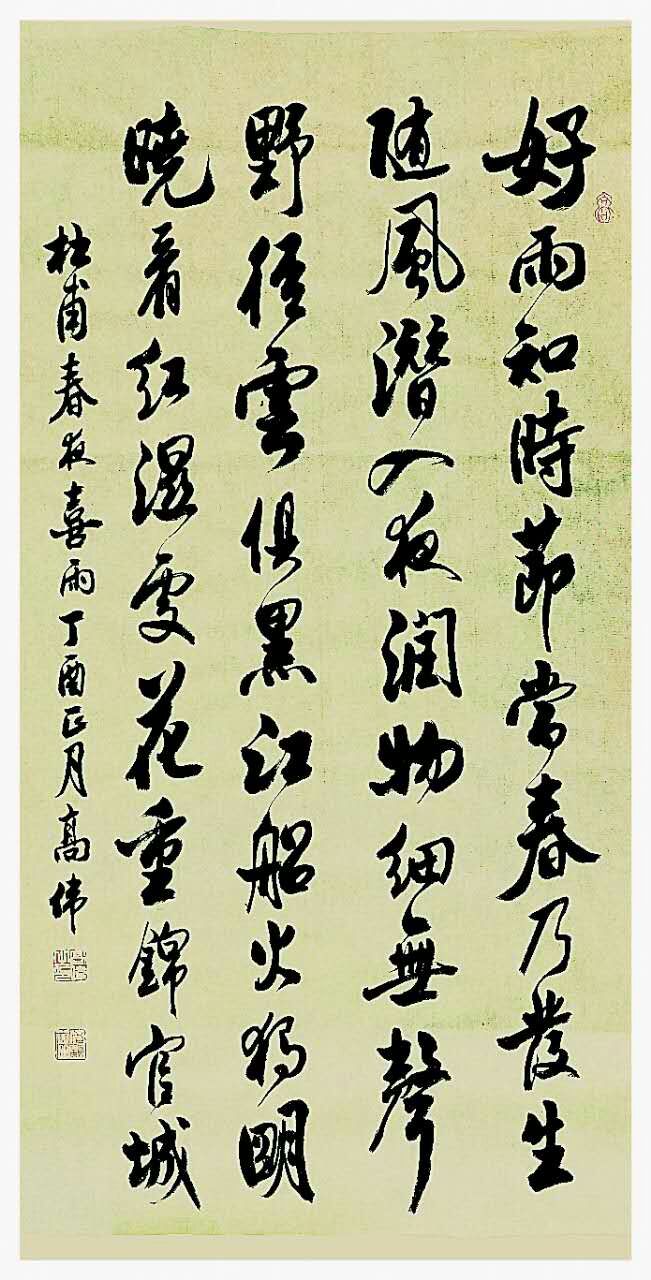 好雨知時節當春乃發生
随風潛入夜潤物細無聲
野徑雲俱黑江船火獨明
曉看紅濕處花重錦官城
杜甫春夜喜雨丁酉正月高偉